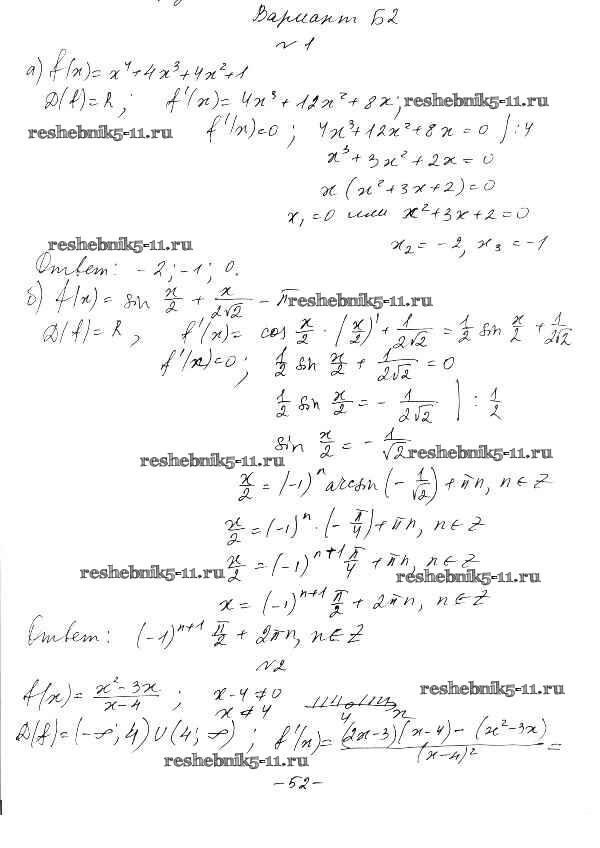 Вариант Б2
№1
а) f(x) = x⁴ + 4x³ + 4x² + 1
D(f) = R; f'(x) = 4x³ + 12x² + 8x; reshebnik5-11.ru
reshebnik5-11.ru f'(x) = 0; 4x³ + 12x² + 8x = 0 | :4
x³ + 3x² + 2x = 0
x(x² + 3x + 2) = 0
x₁ = 0 или x² + 3x + 2 = 0
reshebnik5-11.ru x₂ = -2, x₃ = -1
Ответ: -2; -1; 0.
б) f(x) = sin x/2 + x/(2√2) - π reshebnik5-11.ru
D(f) = R, f'(x) = cos x/2 · (x/2)' + 1/(2√2) = 1/2 sin x/2 + 1/(2√2)
f'(x) = 0; 1/2 sin x/2 + 1/(2√2) = 0
1/2 sin x/2 = - 1/(2√2) | : 1/2
sin x/2 = - 1/√2 reshebnik5-11.ru
reshebnik5-11.ru
x/2 = (-1)ⁿ arcsin(- 1/√2) + πn, n ∈ Z
x/2 = (-1)ⁿ · (- π/4) + πn, n ∈ Z
x/2 = (-1)ⁿ⁺¹ π/4 + πn, n ∈ Z
reshebnik5-11.ru reshebnik5-11.ru
x = (-1)ⁿ⁺¹ π/2 + 2πn, n ∈ Z
Ответ: (-1)ⁿ⁺¹ π/2 + 2πn, n ∈ Z
№2
reshebnik5-11.ru
f(x) = (x² - 3x)/(x - 4); x - 4 ≠ 0
x ≠ 4 4 x
D(f) = (-∞; 4) ∪ (4; ∞); f'(x) = ((2x - 3)(x - 4) - (x² - 3x))/(x - 4)² =
reshebnik5-11.ru
- 52 -